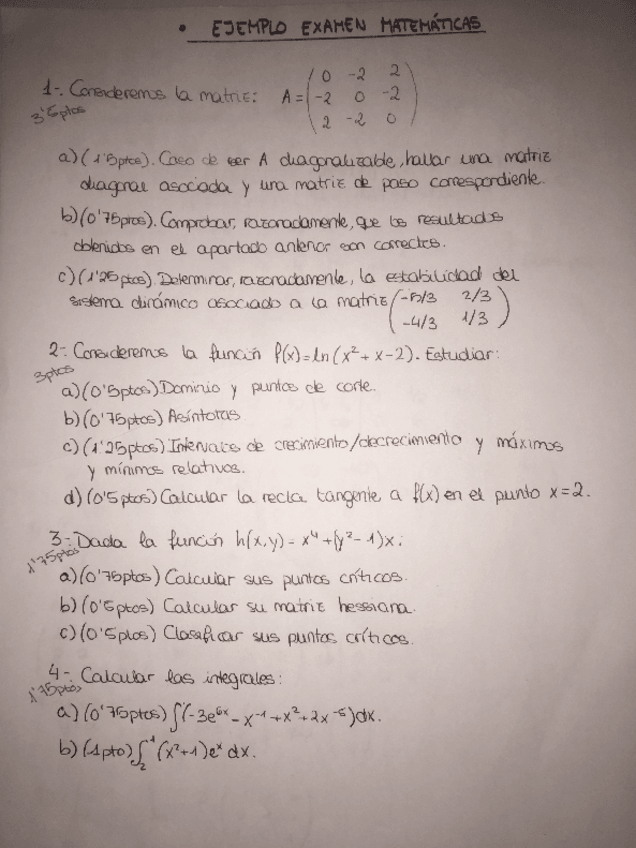 • EJEMPLO EXAMEN MATEMÁTICAS
1-. Consideremos la matriz: A = ( 0 -2 2
3'5ptos -2 0 -2
2 -2 0 )
a) (1'5ptos). Caso de ser A diagonalizable, hallar una matriz
diagonal asociada y una matriz de paso correspondiente.
b) (0'75ptos). Comprobar, razonadamente, que los resultados
obtenidos en el apartado anterior son correctos.
c) (1'25ptos). Determinar, razonadamente, la estabilidad del
sistema dinámico asociado a la matriz ( -5/3 2/3
-4/3 1/3 )
2-. Consideremos la función f(x)=ln(x²+x-2). Estudiar:
3ptos
a) (0'5ptos) Dominio y puntos de corte.
b) (0'75ptos) Asíntotas
c) (1'25ptos) Intervalos de crecimiento/decrecimiento y máximos
y mínimos relativos.
d) (0'5ptos) Calcular la recta tangente a f(x) en el punto x=2.
3-. Dada la función h(x,y)=x⁴+(y²-1)x:
1'75ptos
a) (0'75ptos) Calcular sus puntos críticos.
b) (0'5ptos) Calcular su matriz hessiana.
c) (0'5ptos) Clasificar sus puntos críticos.
4-. Calcular las integrales:
1'75ptos
a) (0'75ptos) ∫(-3e⁶ˣ - x⁻¹ + x² + 2x⁻⁵)dx.
b) (1pto) ∫₂¹ (x²+1)eˣ dx.